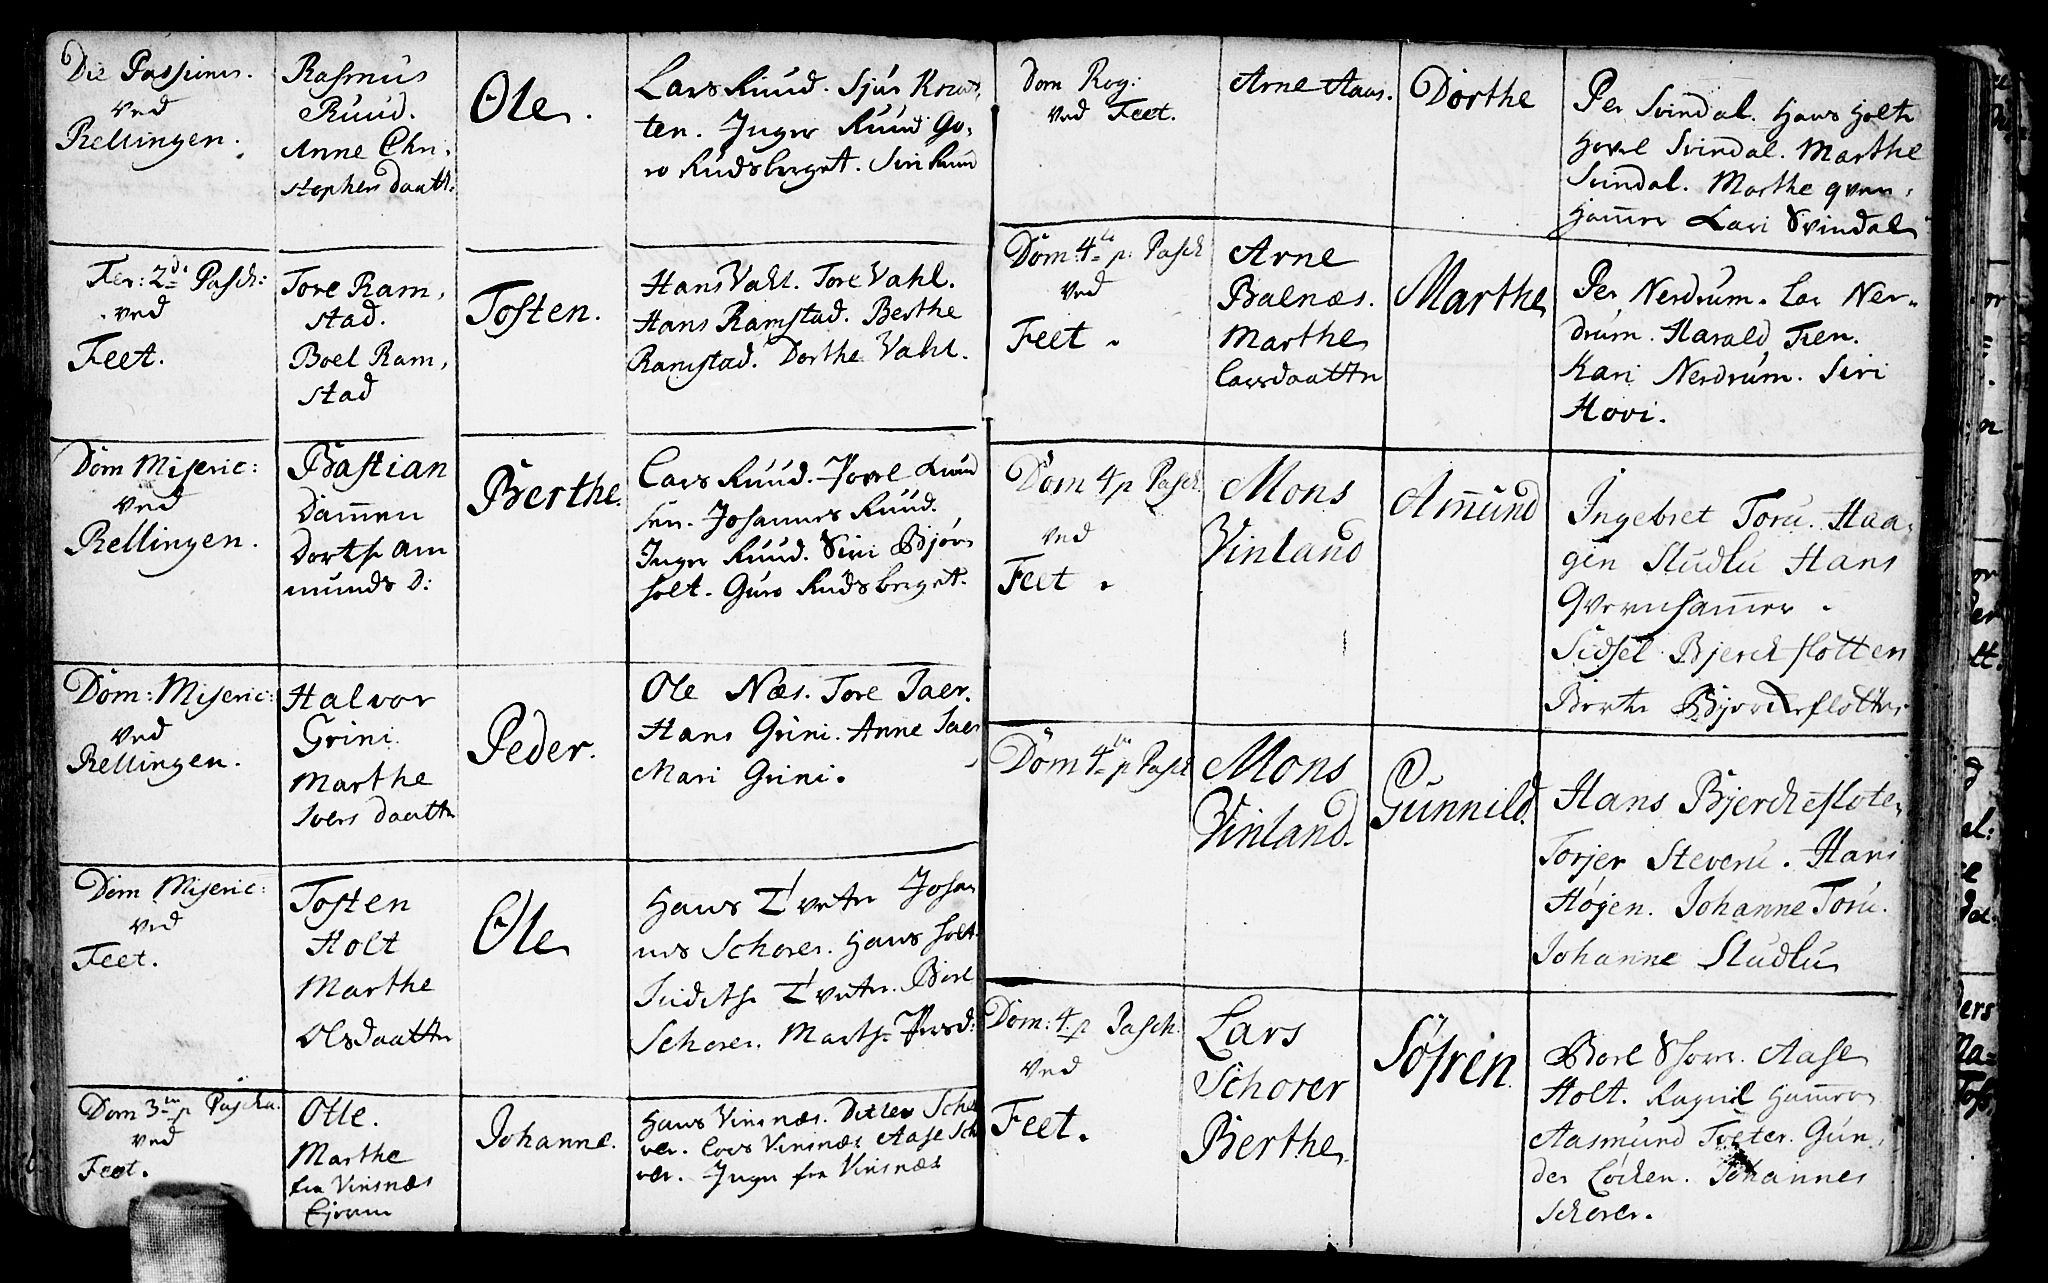 Die Passionis.
ved
Rellingen.
Rasmus
Ruud.
Anne Chri,
stophers daatt.
Ole.
Lars Ruud. Sjur Knat,
ten. Inger Ruud Go,
ro Rudsberget. Siri Ruud
Fer: 2di Pasch:
ved
Feet.
Tore Ram,
stad.
Boel Ram,
stad
Tosten.
Hans Vahl. Tore Vahl.
Hans Ramstad. Berthe
Ramstad. Dorthe Vahl.
Dom Miseric:
ved
Rellingen.
Bastian
Dam̄en
Dorth Am
munds D:
Berthe.
Lars Ruud. Povel
sen. Johannes Ruud.
Inger Ruud. Siri Bjørn
holt. Guro Rudsberget.
Dom: Miseric:
ved
Rellingen.
Halvor
Grini.
Marthe
Ivers daattr
Peder.
Ole Næs. Tore Jaer.
Hans Grini. Anne Jaer
Mari Grini.
Dom Miseric:
ved
Feet.
Tosten
Holt
Marthe
Olsdaattr
Ole
Hans Tveter Johan
nes Schorer. Hans Holt
Judith Tveter. Boel
Schorer. Marth Persd:
Dom 3tia p Pascha.
ved
Feet.
Olle.
Marthe
fra Vinsnæs
Ejerne
Johanne.
Hans Vinsnæs. Ditlev Scho
rer. Lars Vinsnæs Aase Scho
rer. Inger fra Vinsnæs
Dom Rog:
ved Feet.
Arne Aaas.
Dorthe
Per Svindal. Hans Holt
Hovel Svindal. Marthe
Svindal. Marthe qvern,
ham̄er Lari Svindal
Dom: 4ta p: Pasch
ved
Feet.
Arne
Balnæs.
Marthe
Larsdaattr
Marthe
Per Nerdrum. Lar Ner-
drum. Harald Fien.
Kari Nerdrum. Siri
Hovi.
Dom 4 p Pasch.
ved
Feet.
Mons
Vinland
Am̄und
Ingebret Toru. Haa,
gen Studlu Hans
Qvernham̄er.
Sidsel Bjerch flotten
Berte Bjercheflotten
Dom 4ta p Pasch
Mons
Vinland.
Gunnild.
Hans Bjercheflote,
Torjer Steveru. Hans
Høgen. Johanne Toru.
Johanne Studlu
Dom: 4 p Pasch:
ved
Feet.
Lars
Schorer
Berthe
Søfren.
Boel Schorer. Aase
Holt. Ragnil Ham̄eren
Aasmund Toeter. Gun,
der Løcken. Johannes
Schorer.